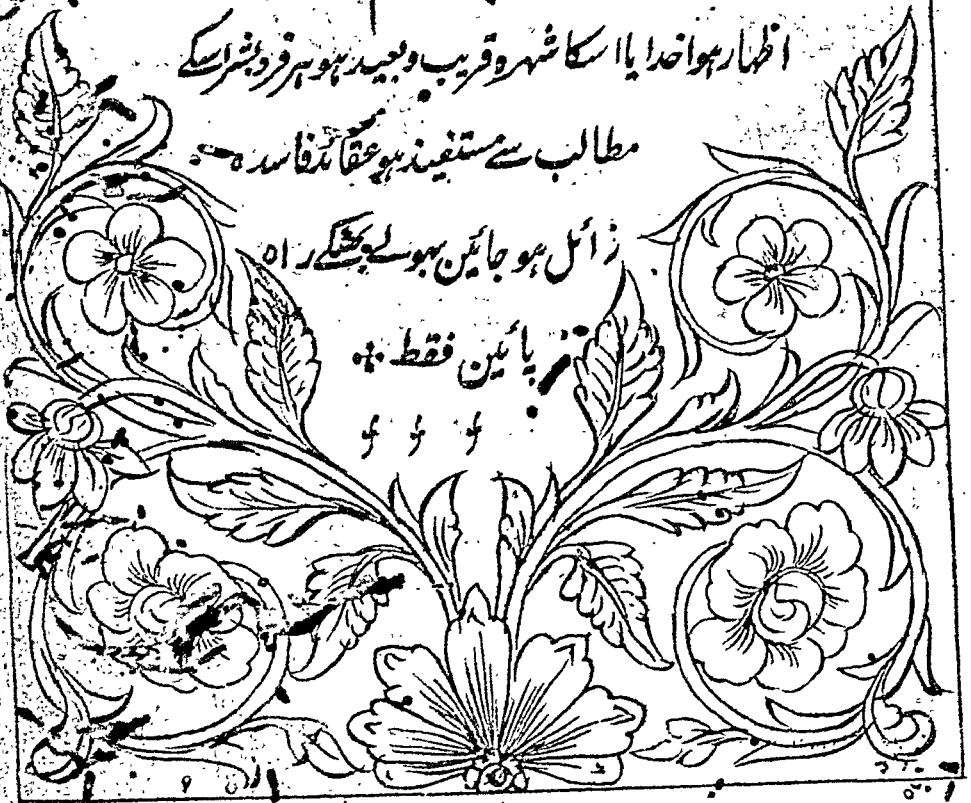 اظہار ہوا خدایا اسکا شہرہ قریب و بعید ہو ہر فرد بشر اسکے
مطالب سے مستفیذ ہو عقائد فاسدہ
زائل ہو جائین بھولے بھٹکے راہ
پائین فقط